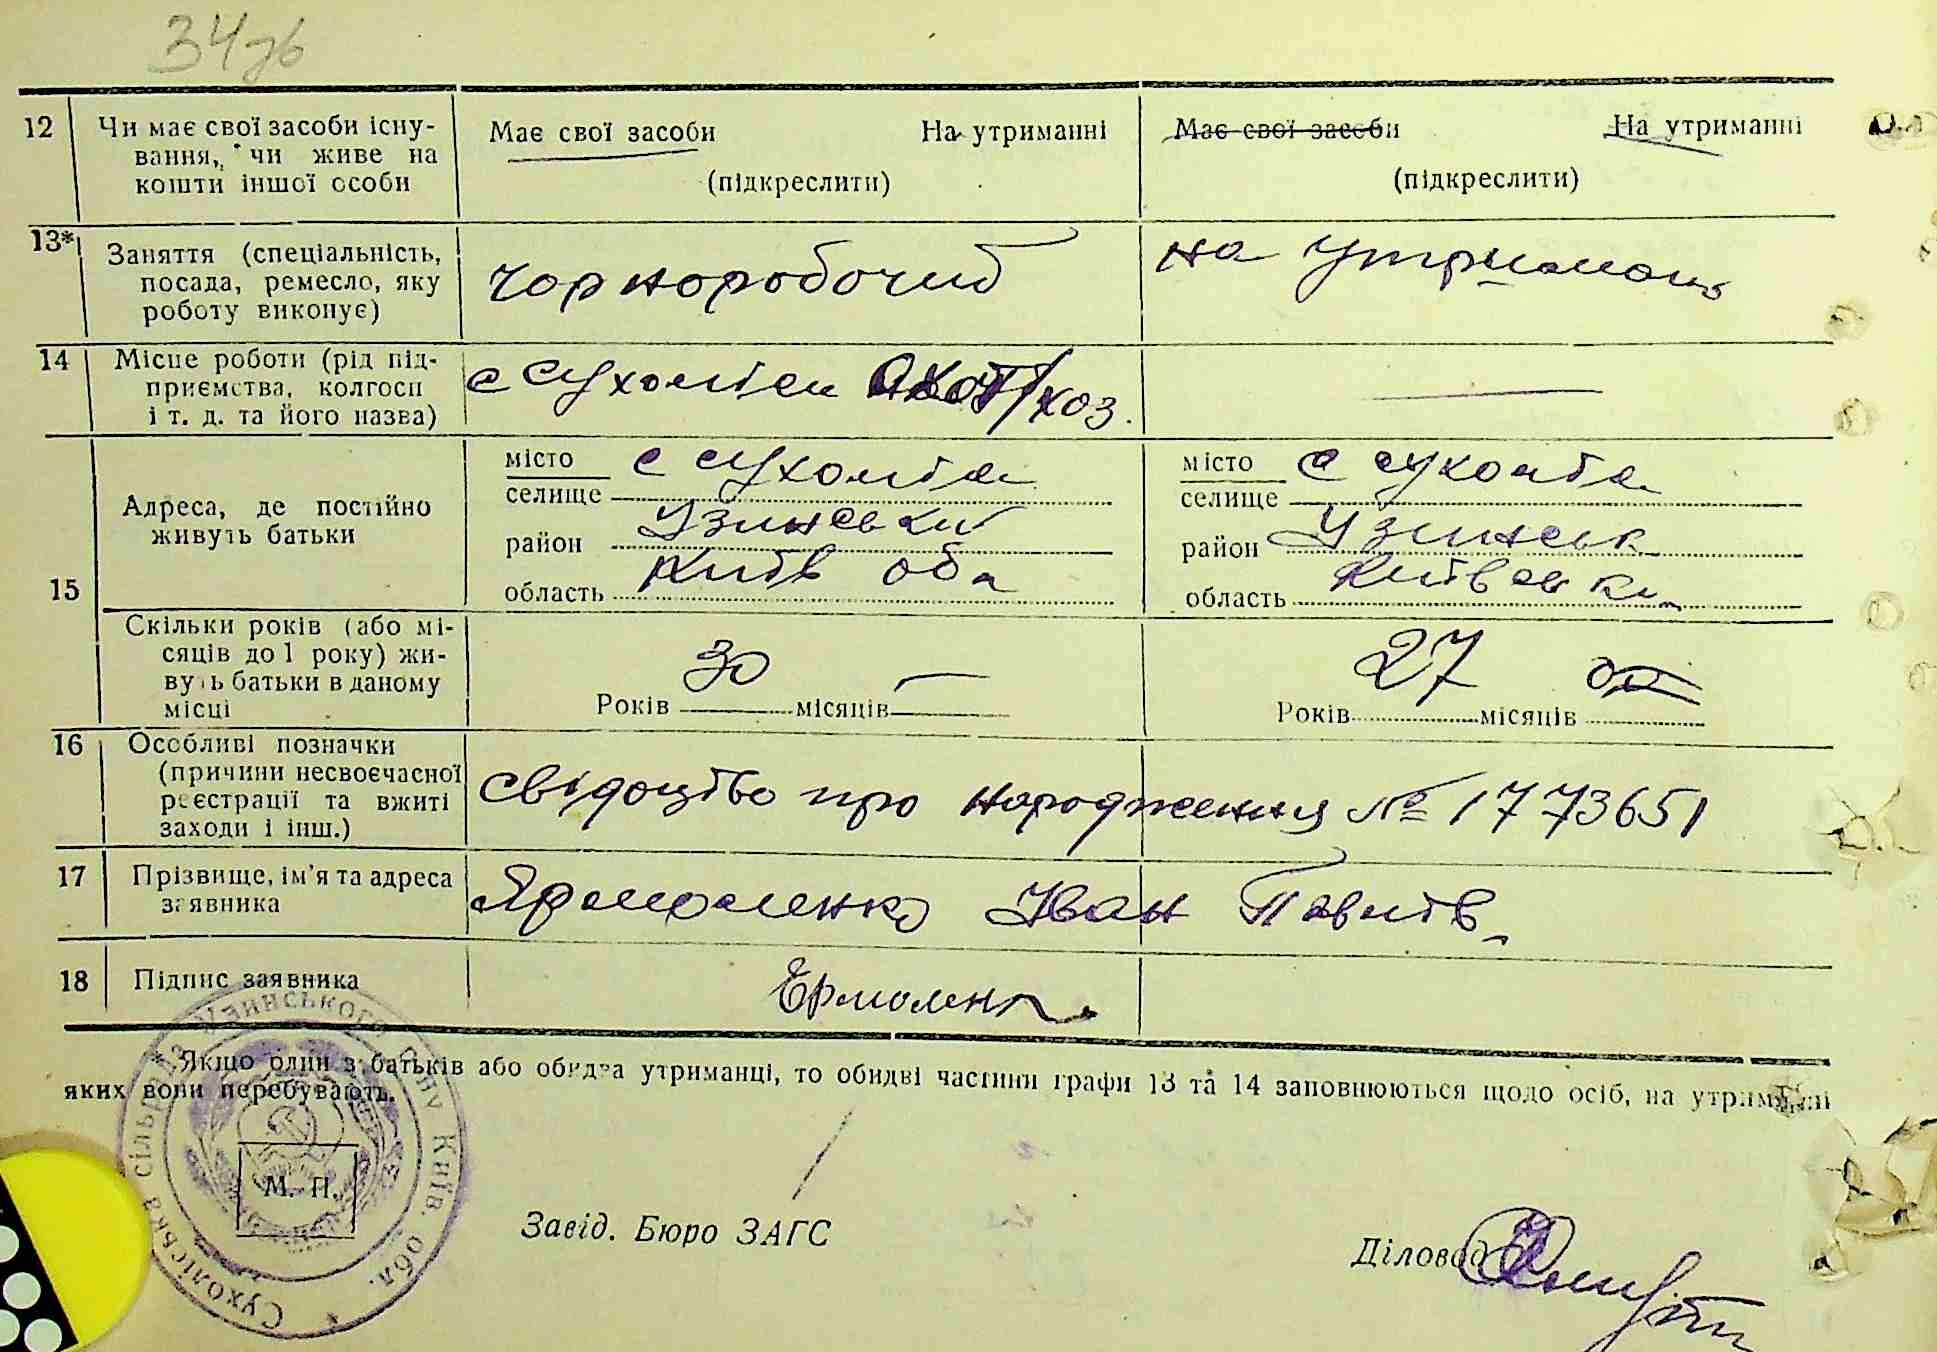 34зв
12 Чи має свої засоби існу-
вання, чи живе на
кошти іншої особи
Має свої засоби На утриманні
(підкреслити)
Має свої засоби На утриманні
(підкреслити)
13* Заняття (спеціальність,
посада, ремесло, яку
роботу виконує)
чорноробочий
на утриманні
14 Місце роботи (рід під-
приємства, колгосп
і т. д. та його назва)
с Сухоліси охот/хоз.
15
Адреса, де постійно
живуть батьки
місто
селище с Сухоліси
район Узинський
область Київ обл
місто
селище с Сухоліси
район Узинськ
область Київськ
Скільки років (або мі-
сяців до 1 року) жи-
вуть батьки в даному
місці
30
Років місяців —
27
Років місяців
16 Особливі позначки
(причини несвоєчасної
реєстрації та вжиті
заходи і інш.)
свідоцтво про народження № 1773651
17 Прізвище, ім'я та адреса
заявника
Ярмоленко Іван Павлів
18 Підпис заявника
Ермоленк
* Якщо один з батьків або обидва утриманці, то обидві частини графи 13 та 14 заповнюються щодо осіб, на утриманні
яких вони перебувають.
М. П.
Сухоліська сільрада Узинського р-ну Київ. обл.
Завід. Бюро ЗАГС
Діловод